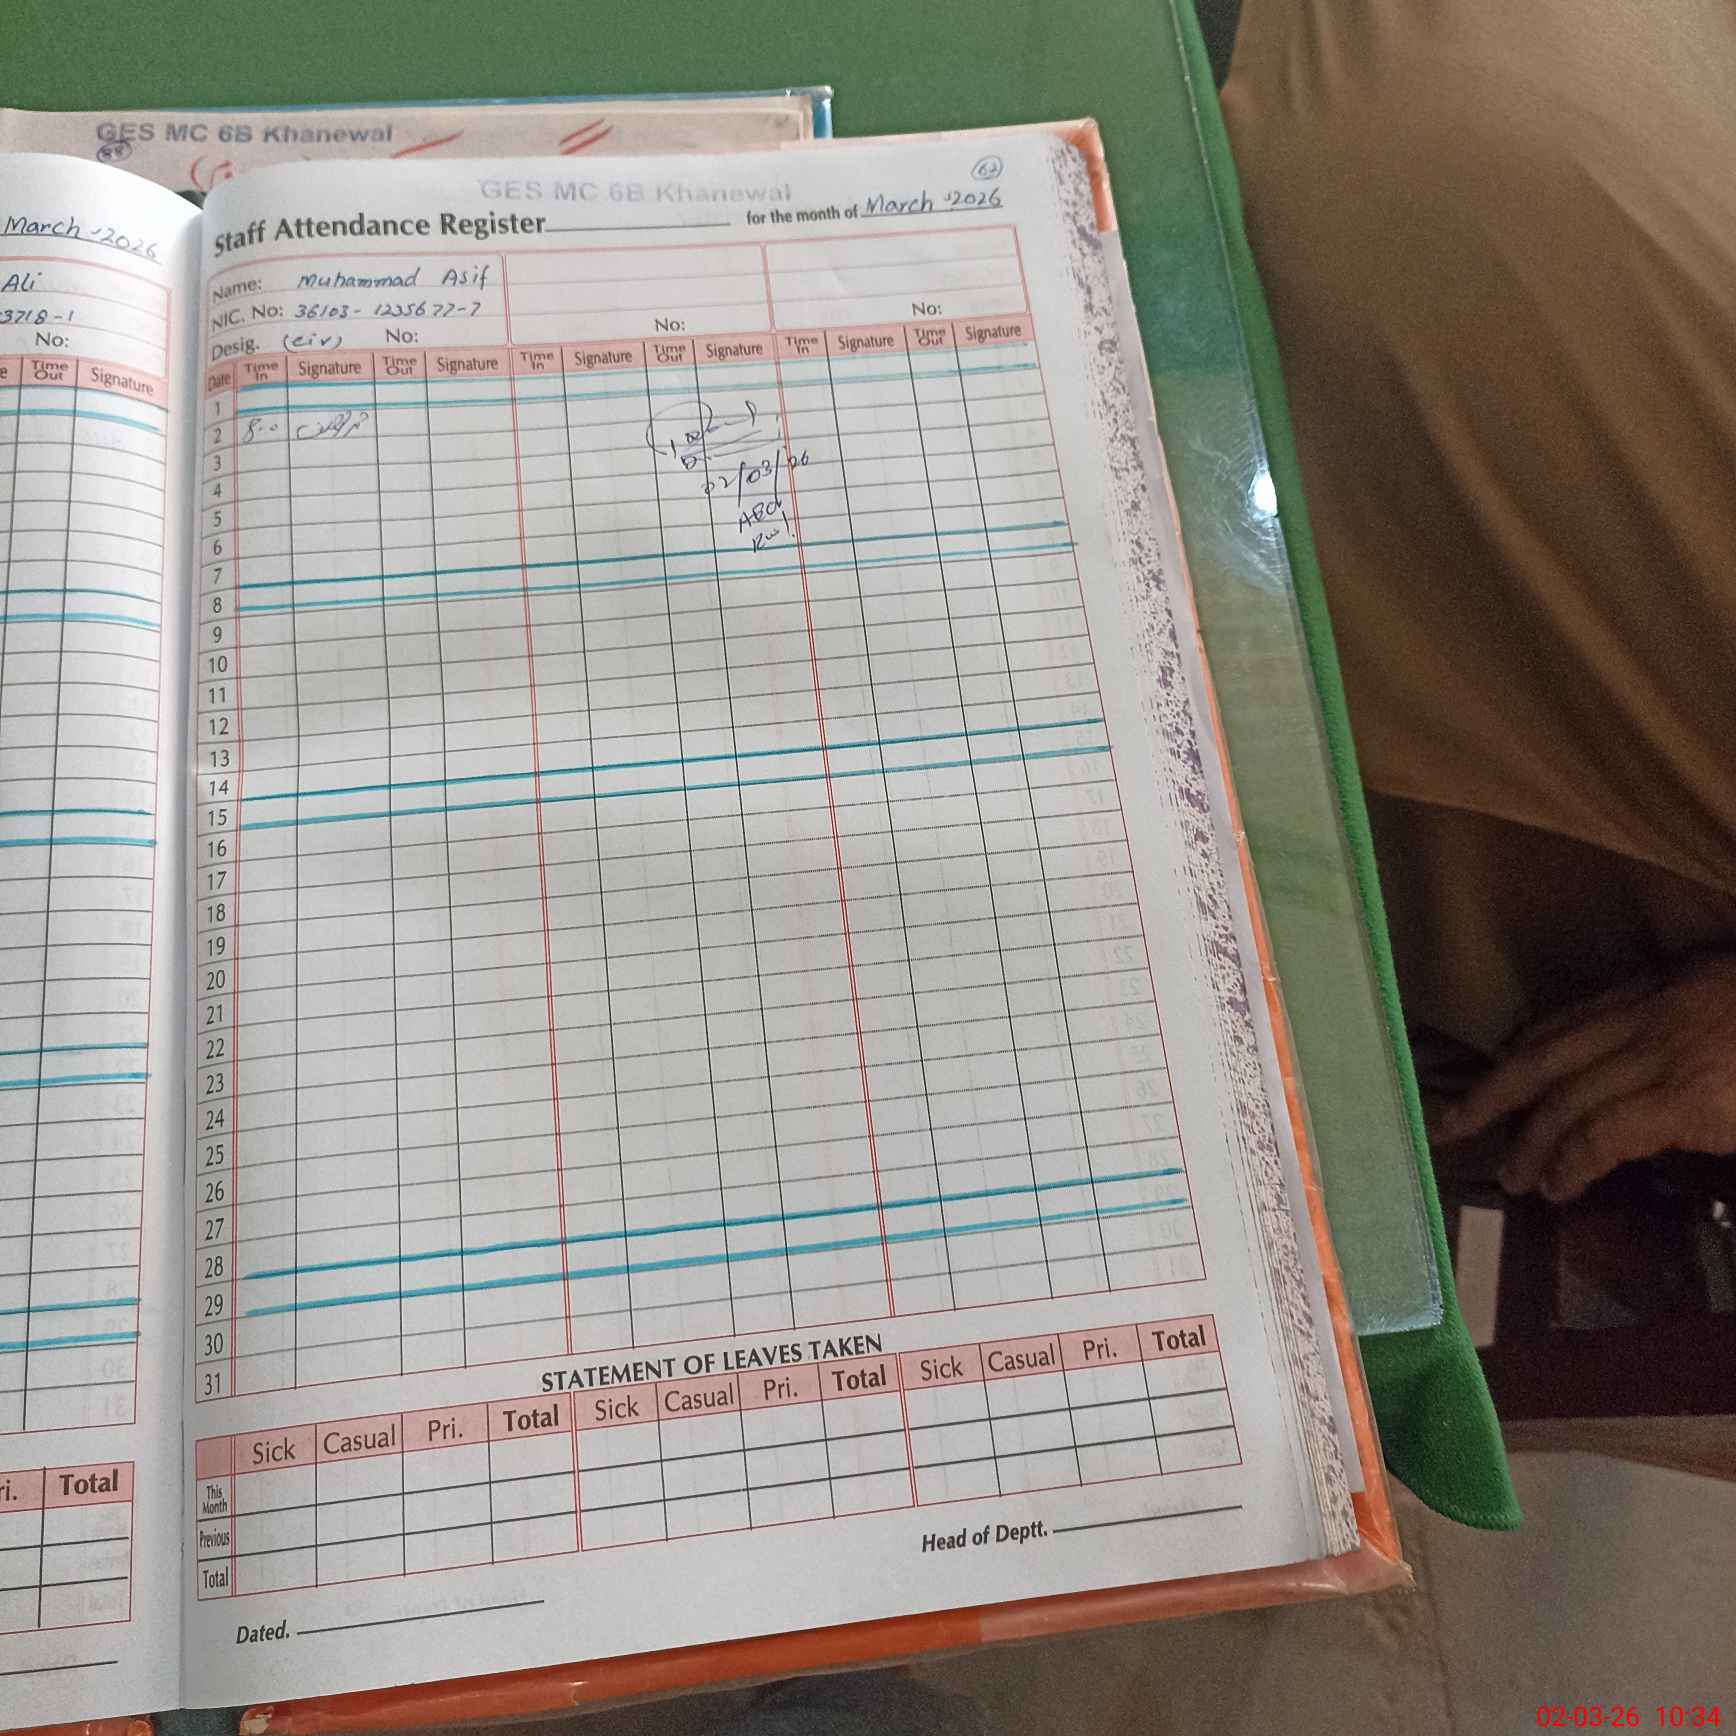 GES MC 6B Khanewal
88
March 2026
Ali
3718-1
No:
Time Out Signature
Total
62
GES MC 6B Khanewal
Staff Attendance Register for the month of March 2026
Name: Muhammad Asif
NIC. No: 36103-1235677-7
Desig. (civ) No: No: No:
Date Time In Signature Time Out Signature Time In Signature Time Out Signature Time In Signature Time Out Signature
1
2 8:00
3
02/03/26
4
5
6
7
8
9
10
11
12
13
14
15
16
17
18
19
20
21
22
23
24
25
26
27
28
29
30
31
STATEMENT OF LEAVES TAKEN
Sick Casual Pri. Total Sick Casual Pri. Total Sick Casual Pri. Total
This Month
Previous
Total
Head of Deptt.
Dated.
02-03-26 10:34